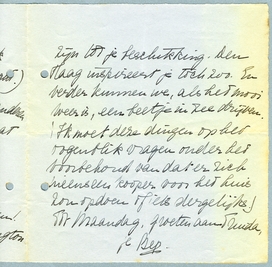 zijn tot je beschikking. Den
Haag inspireert je toch zoo. En
verder kunnen we, als het mooi
weer is, een beetje in zee drijven.
(Ik moet deze dingen op het
oogenblik vragen onder het
voorbehoud van dat er zich
ineens een kooper voor het huis
zou opdoen of iets dergelijks)
Tot Maandag, groeten aan
je Bep